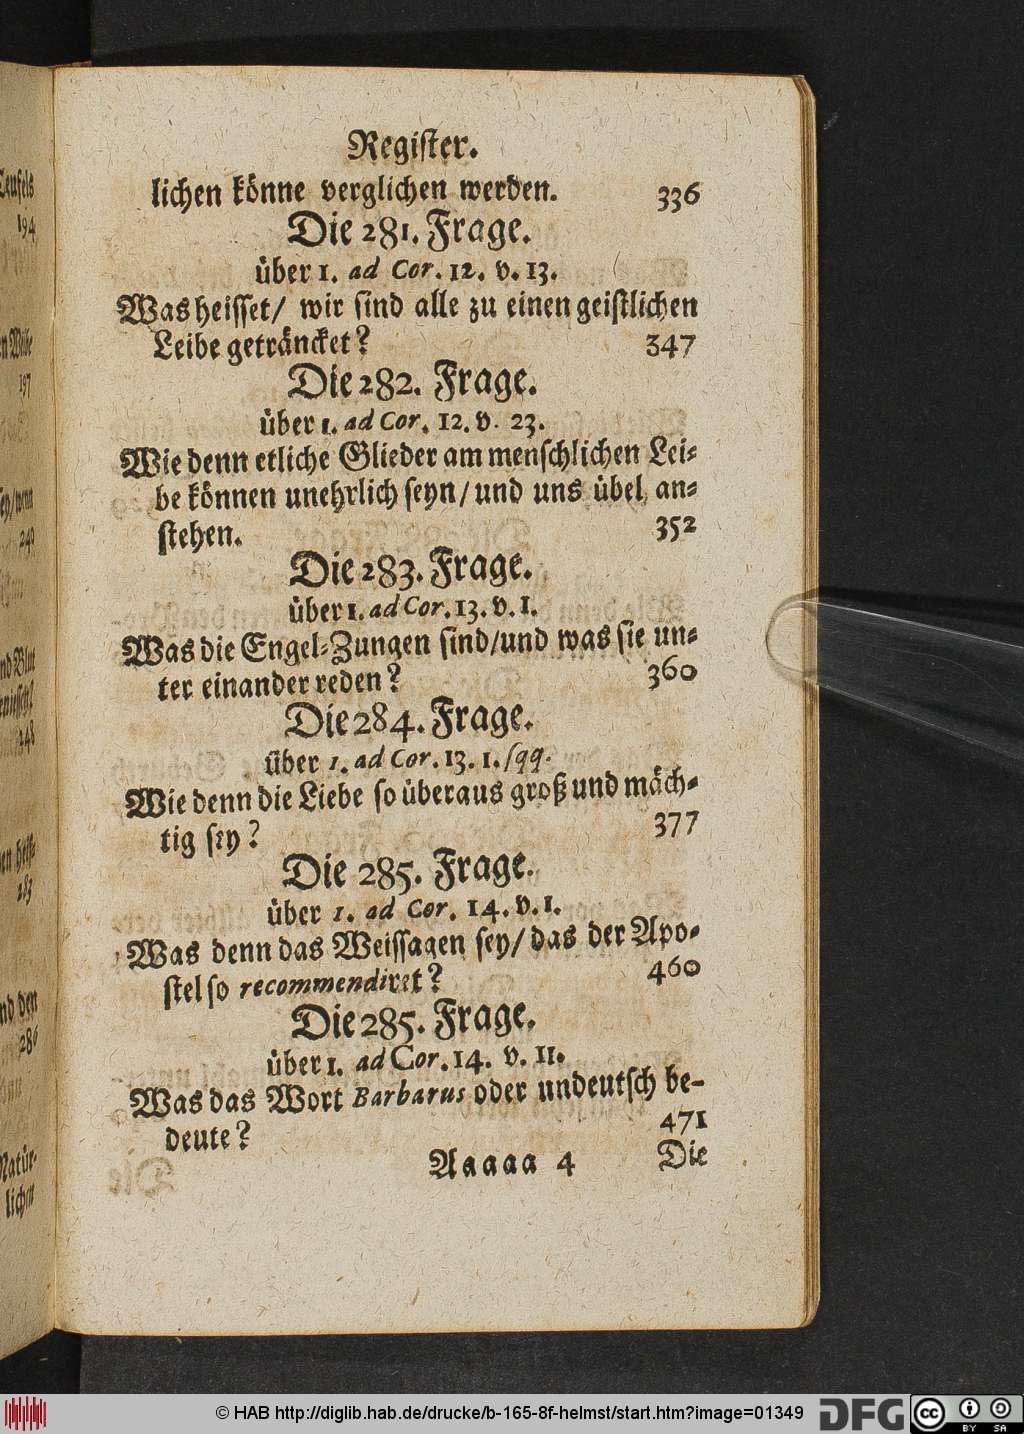 Register.
lichen könne verglichen werden. 336
Die 281. Frage.
über 1. ad Cor. 12. v. 13.
Was heisset/ wir sind alle zu einen geistlichen
Leibe geträncket? 347
Die 282. Frage.
über 1. ad Cor. 12. v. 23.
Wie denn etliche Glieder am menschlichen Lei-
be können unehrlich seyn/ und uns übel an-
stehen. 352
Die 283. Frage.
über 1. ad Cor. 13. v. 1.
Was die Engel-Zungen sind/ und was sie un-
ter einander reden? 360
Die 284. Frage.
über 1. ad Cor. 13. 1. sqq.
Wie denn die Liebe so überaus groß und mäch-
tig sey? 377
Die 285. Frage.
über 1. ad Cor. 14. v. 1.
Was denn das Weissagen sey/ das der Apo-
stel so recommendiret? 460
Die 285. Frage.
über 1. ad Cor. 14. v. 11.
Was das Wort Barbarus oder undeutsch be-
deute? 471
Aaaaa 4 Die
Teufels
194
197
240
nd Blut
248
283
nd den
286
Natür-
lichen
© HAB http://diglib.hab.de/drucke/b-165-8f-helmst/start.htm?image=01349
DFG
cc
BY SA